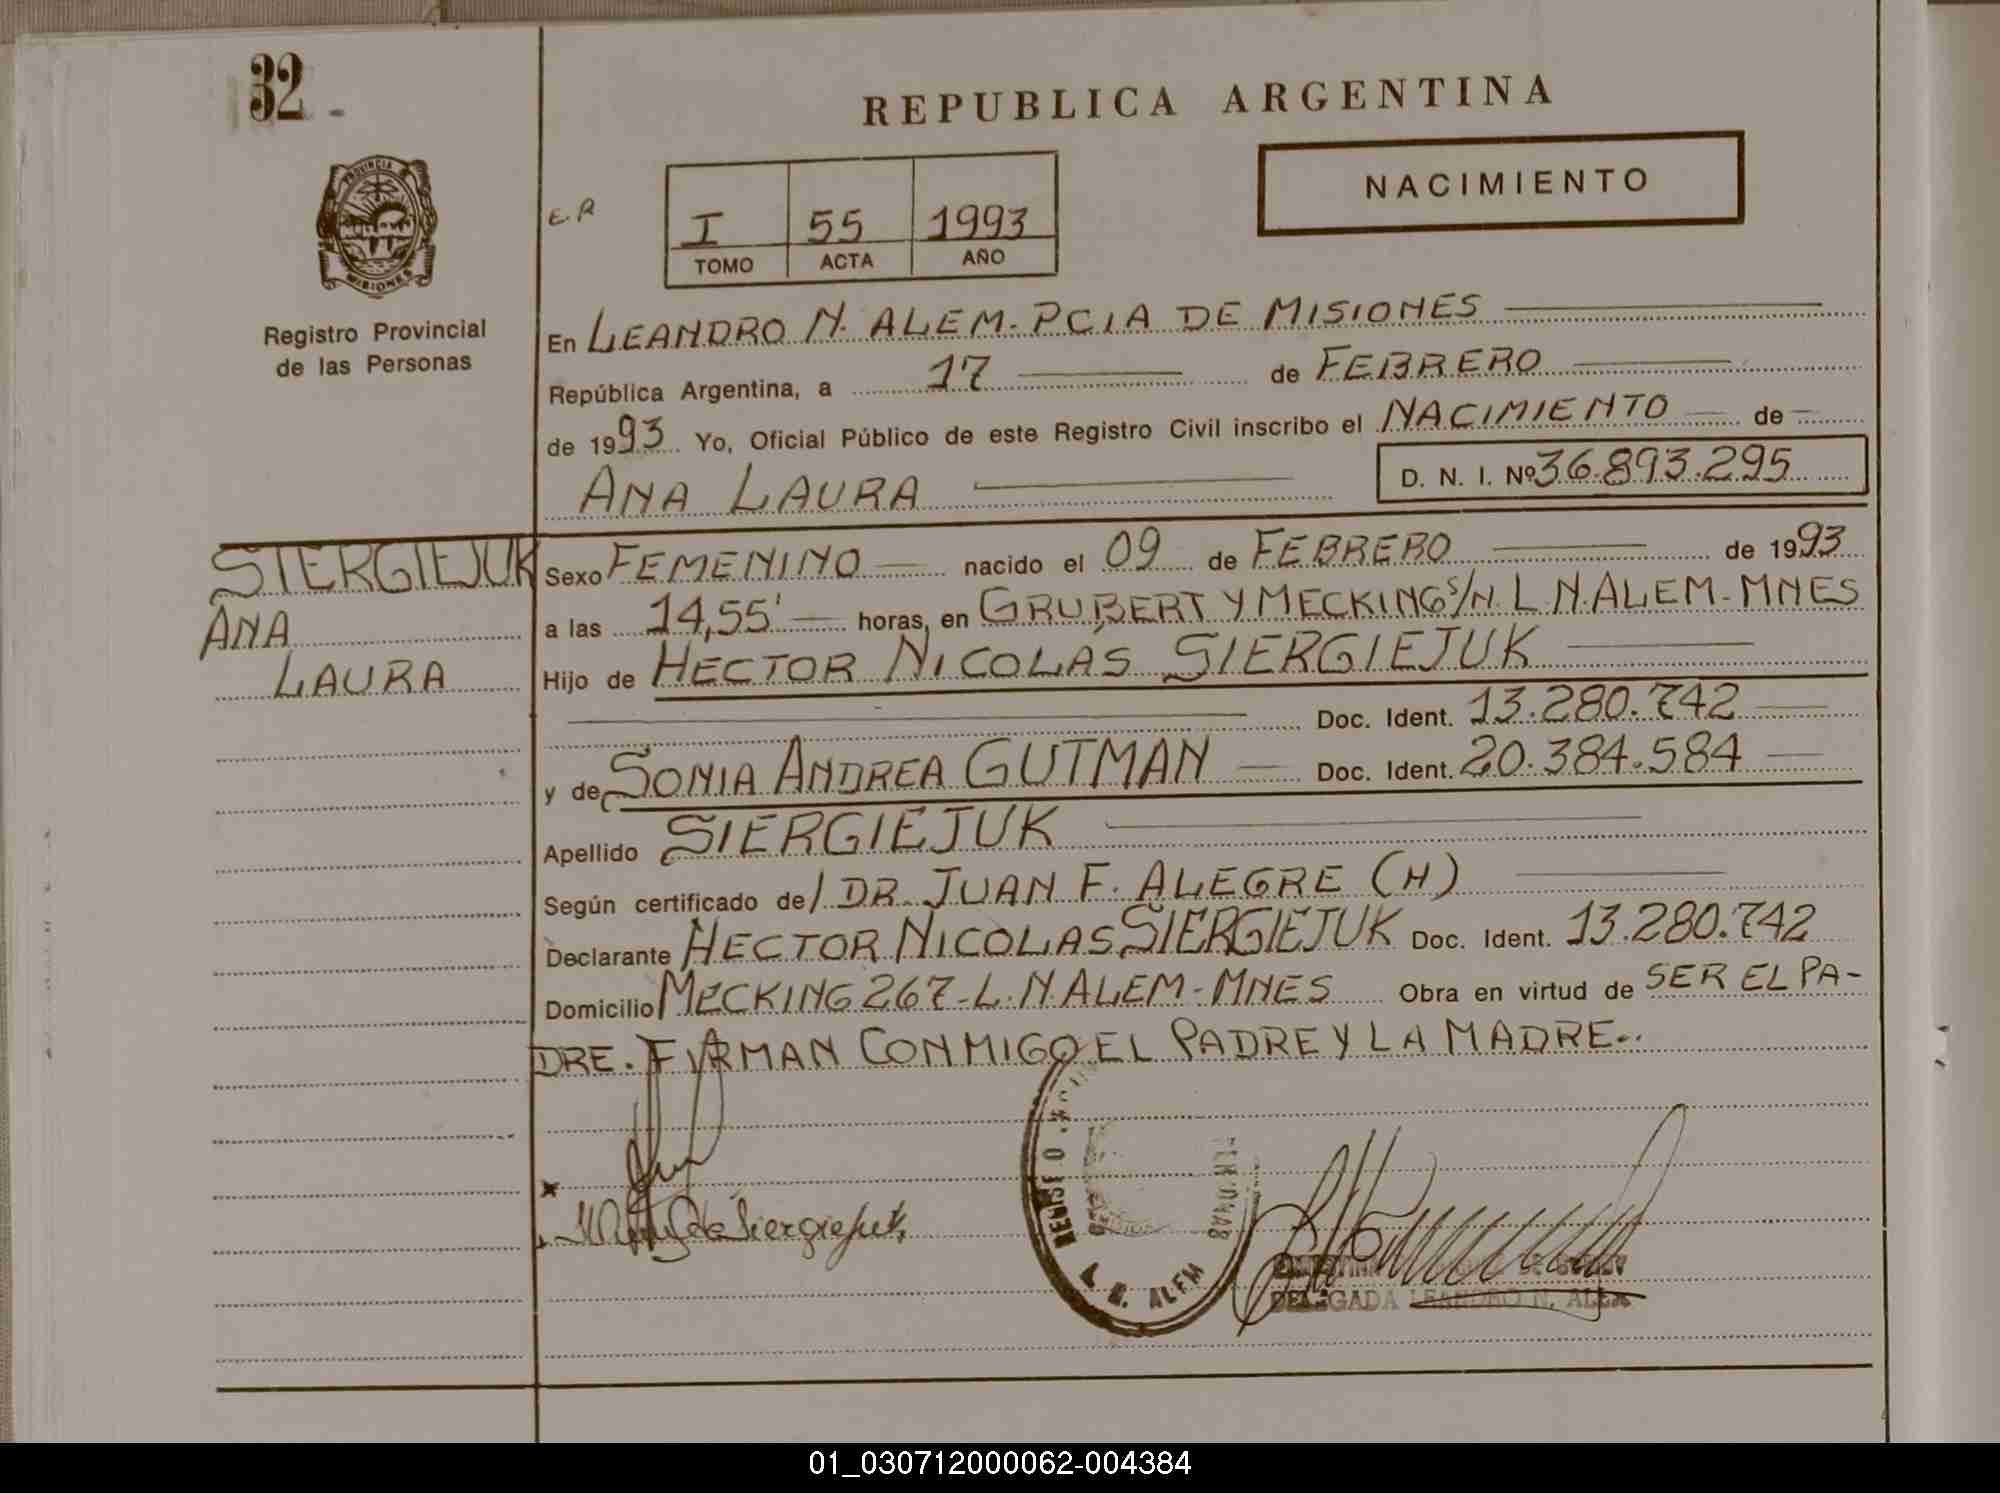 32
REPUBLICA ARGENTINA
NACIMIENTO
PROVINCIA
MISIONES
Registro Provincial
de las Personas
E.R
I 55 1993
TOMO ACTA AÑO
En LEANDRO N. ALEM-PCIA DE MISIONES
República Argentina, a 17 de FEBRERO
de 1993 Yo, Oficial Público de este Registro Civil inscribo el NACIMIENTO de
ANA LAURA D. N. I. Nº 36.893.295
SIERGIEJUK
ANA
LAURA
Sexo FEMENINO nacido el 09 de FEBRERO de 1993
a las 14,55' horas, en GRUBERT Y MECKING S/N. L.N.ALEM-MNES
Hijo de HECTOR NICOLAS SIERGIEJUK
Doc. Ident. 13.280.742
y de SONIA ANDREA GUTMAN Doc. Ident. 20.384.584
Apellido SIERGIEJUK
Según certificado de/ DR. JUAN F. ALEGRE (H)
Declarante HECTOR NICOLAS SIERGIEJUK Doc. Ident. 13.280.742
Domicilio MECKING 267-L.N.ALEM-MNES Obra en virtud de SER EL PA-
DRE. FIRMAN CONMIGO EL PADRE Y LA MADRE..
de Siergiejuk
L. N. ALEM
DELEGADA LEANDRO N. ALEM
01_030712000062-004384